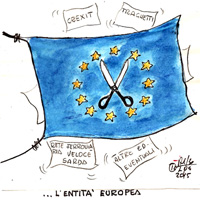 GREXIT
TRAGHETTI
RETE FERROVIA
RIA VELOCE
SARDA
ALTRE ED
EVENTUALI
2015
... L'ENTITÀ EUROPEA